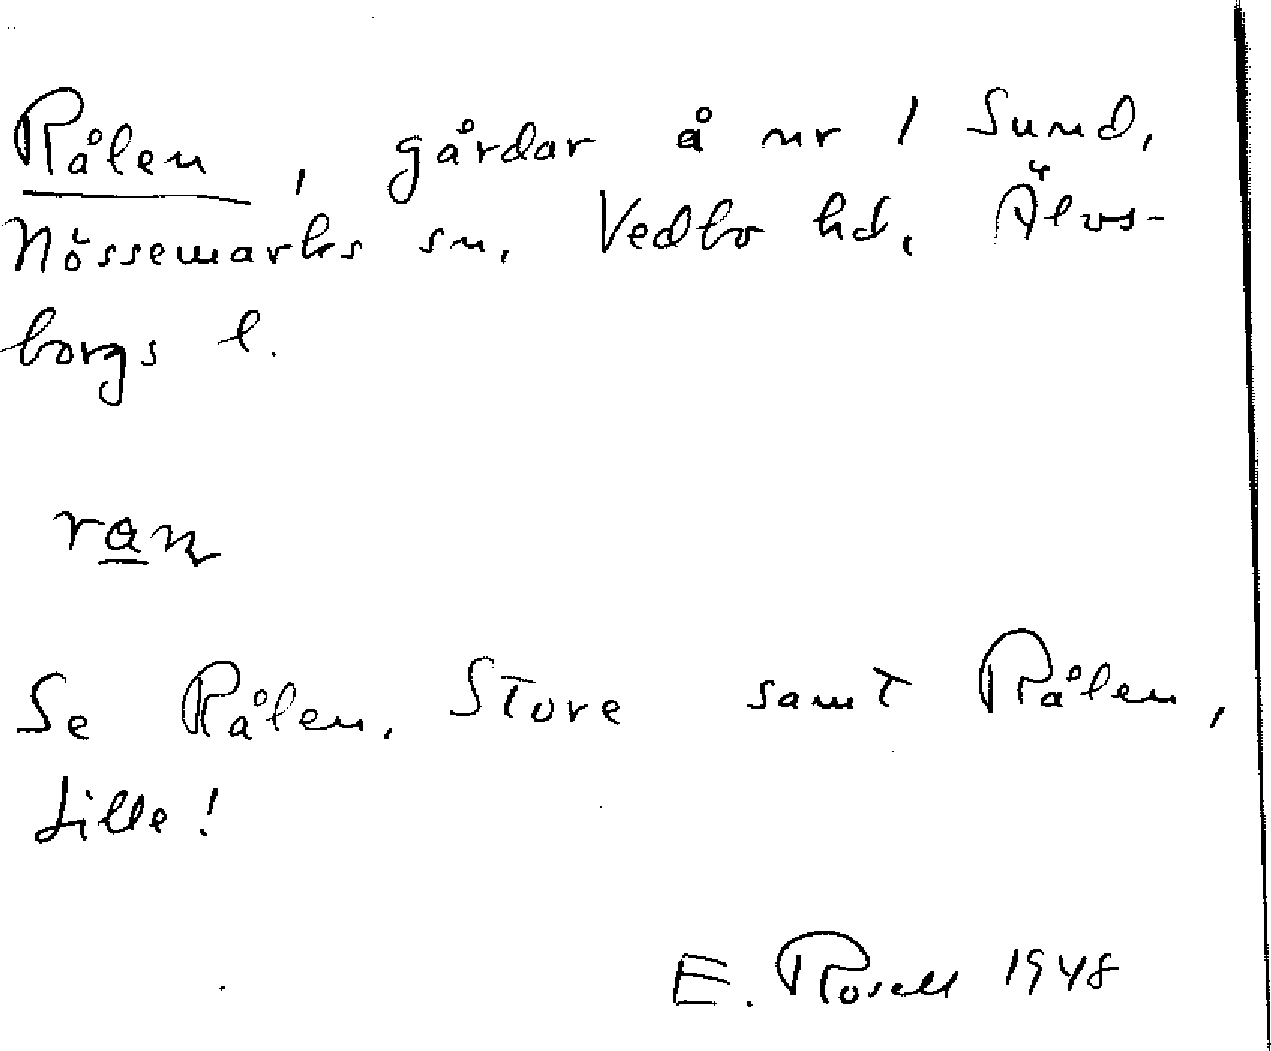 Rålen, gårdar å nr 1 Sund,
Nössemarks sn, Vedbo hd, Älvs-
borgs l.
Se Rålen, Store samt Rålen,
Lille!
E. Rosell 1948